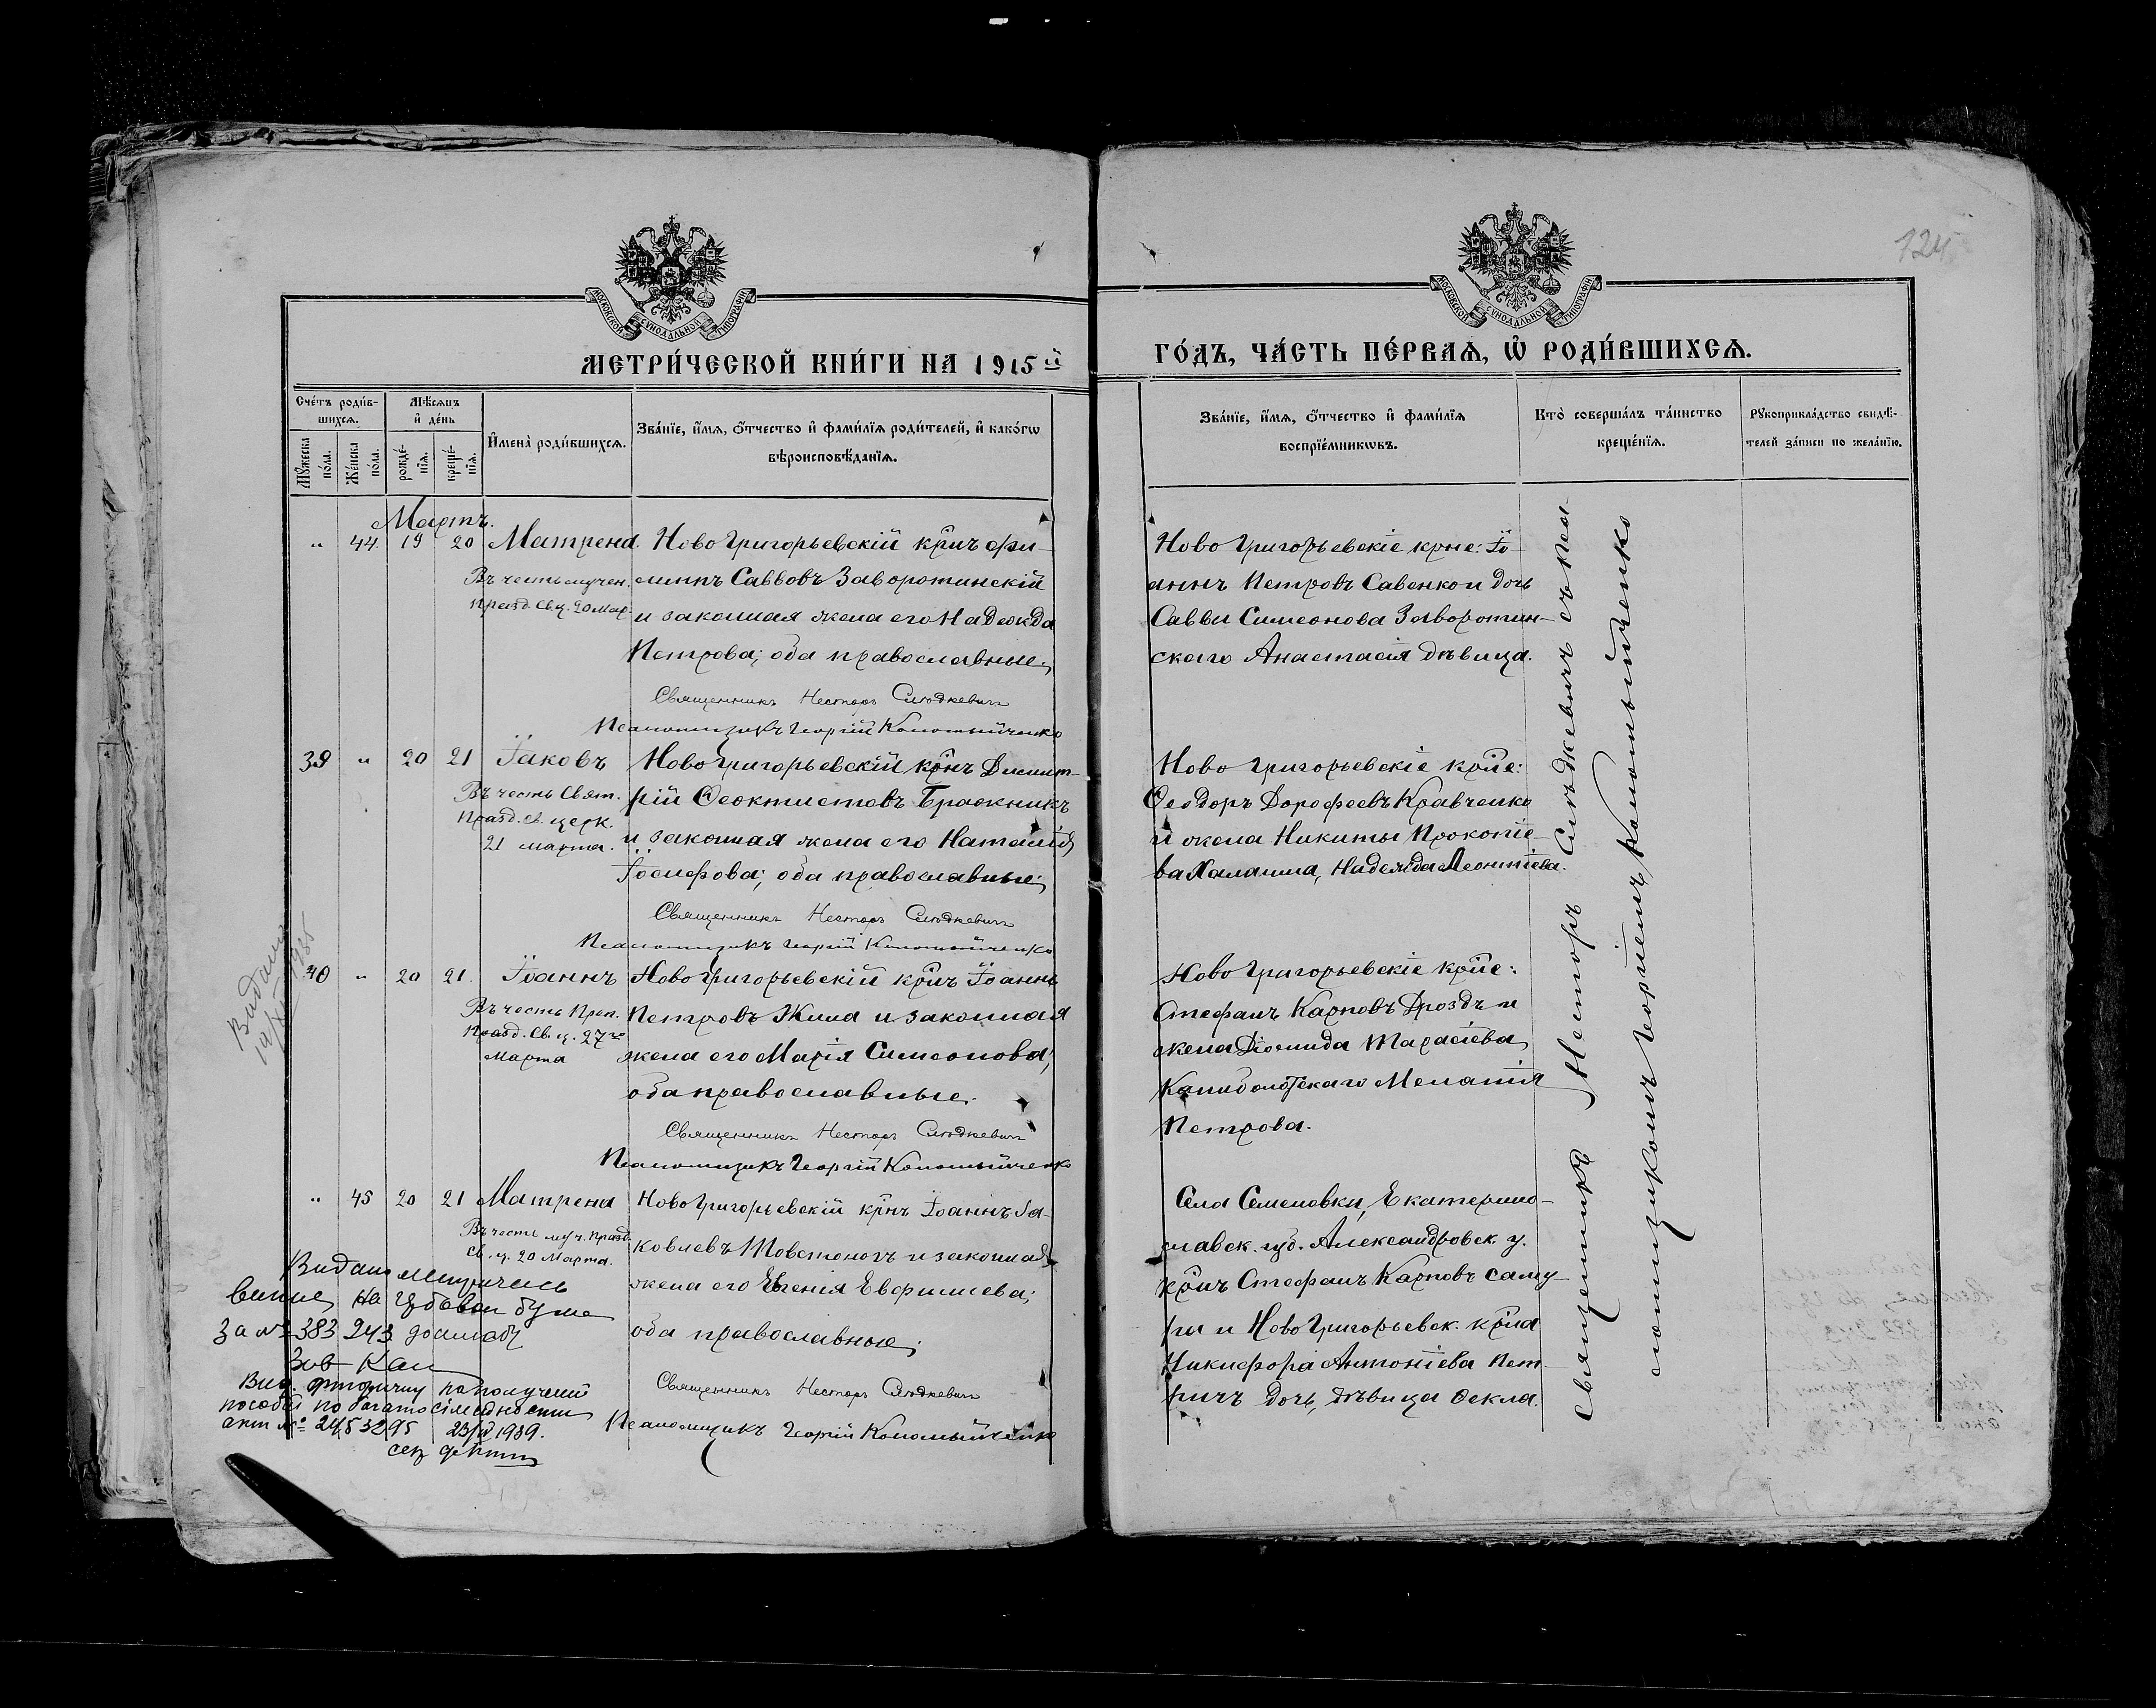 124
МОСКОВСКОЙ СУНОДАЛЬНОЙ ТИПОГРАФІИ
МОСКОВСКОЙ СУНОДАЛЬНОЙ ТИПОГРАФІИ
МЕТРИ́ЧЕСКОЙ КНИ́ГИ НА 1915 й
ГО́ДЪ, ЧА́СТЬ ПЕ́РВАѦ, Ѡ҆ РОДИ́ВШИХСѦ.
Сче́тъ роди́в-
шихсѧ.
Мꙋ́жеска по́ла.
Же́нска по́ла.
Мѣ́сѧцъ
и҆ де́нь
рожде́-
нїѧ.
креще́-
нїѧ.
И҆мена̀ роди́вшихсѧ.
Зва́нїе, и҆́мѧ, ѻ҆́тчество и҆ фами́лїѧ роди́телей, и҆ како́гѡ
вѣроисповѣ́данїѧ.
Зва́нїе, и҆́мѧ, ѻ҆́тчество и҆ фами́лїѧ
воспрїе́мникѡвъ.
Кто̀ соверша́лъ та́инство
креще́нїѧ.
Рꙋкоприкла́дство свидѣ́-
телей за́писи по жела́нїю.
Мартъ.
" 44. 19 20 Матрена.
Въ честь мучен.
празд. Св. ц. 20 Мар.
Ново Григорьевскій кр̃нъ Фи-
липпъ Саввовъ Заворотинскій
и законная жена его Надежда
Петрова; оба православные;
Священникъ Несторъ Сльдкевичъ
Псаломщикъ Георгій Коломыйченко
Ново Григорьевскіе кр̃не: Іо-
аннъ Петровъ Савенко и дочь
Саввы Симеонова Заворотин-
скаго Анастасія дѣвица.
39 " 20 21 Іаковъ
Въ честь Свят.
Празд. св. церк.
21 марта.
Ново Григорьевскій кр̃нъ Димит-
рій Ѳеоктистовъ Бражникъ
и законная жена его Наталія
Іосифова; оба православные;
Священникъ Несторъ Сльдкевичъ
Псаломщикъ Георгій Коломыйченко
Ново Григорьевскіе кр̃не:
Ѳеодоръ Дорофеевъ Кравченко
и жена Никиты Прокопіе-
ва Халаима, Надежда Леонтіева.
40 " 20 21. Іоаннъ
Въ честь Преп.
Празд. Св. ц. 27го
Марта
Ново Григорьевскій кр̃нъ Іоаннъ
Петровъ Жила и законная
жена его Марія Симеонова;
оба православные.
Священникъ Несторъ Сльдкевичъ
Псаломщикъ Георгій Коломыйченко
Ново Григорьевскіе кр̃не:
Стефанъ Карповъ Дроздъ и
жена Діомида Тарасіева
Меланія
Петрова.
" 45 20 21 Матрена
Въ честь муч. Празд.
Св. ц. 20 Марта.
Ново Григорьевскій кр̃нъ Іоаннъ Іа-
ковлевъ Товстоногъ и законная
жена его Евгенія Евфимиева;
оба православные;
Священникъ Несторъ Сльдкевичъ
Псаломщикъ Георгій Коломыйченко
Села Семеновки, Екатерино-
славск. губ. Александровск. у.
кр̃нъ Стефанъ Карповъ
и Ново Григорьевск. кр̃на
Никифора Антоніева Пет-
ричъ дочь, дѣвица Ѳекла.
Священникъ Несторъ Сльдкевичъ съ пса-
ломщикомъ Георгіемъ Коломыйченко
Видано
1935
Видано
на
За № 383 243
Вид. вторично на получений
пособий по багатосімейности
акт № 2453295 23/IV 1939.